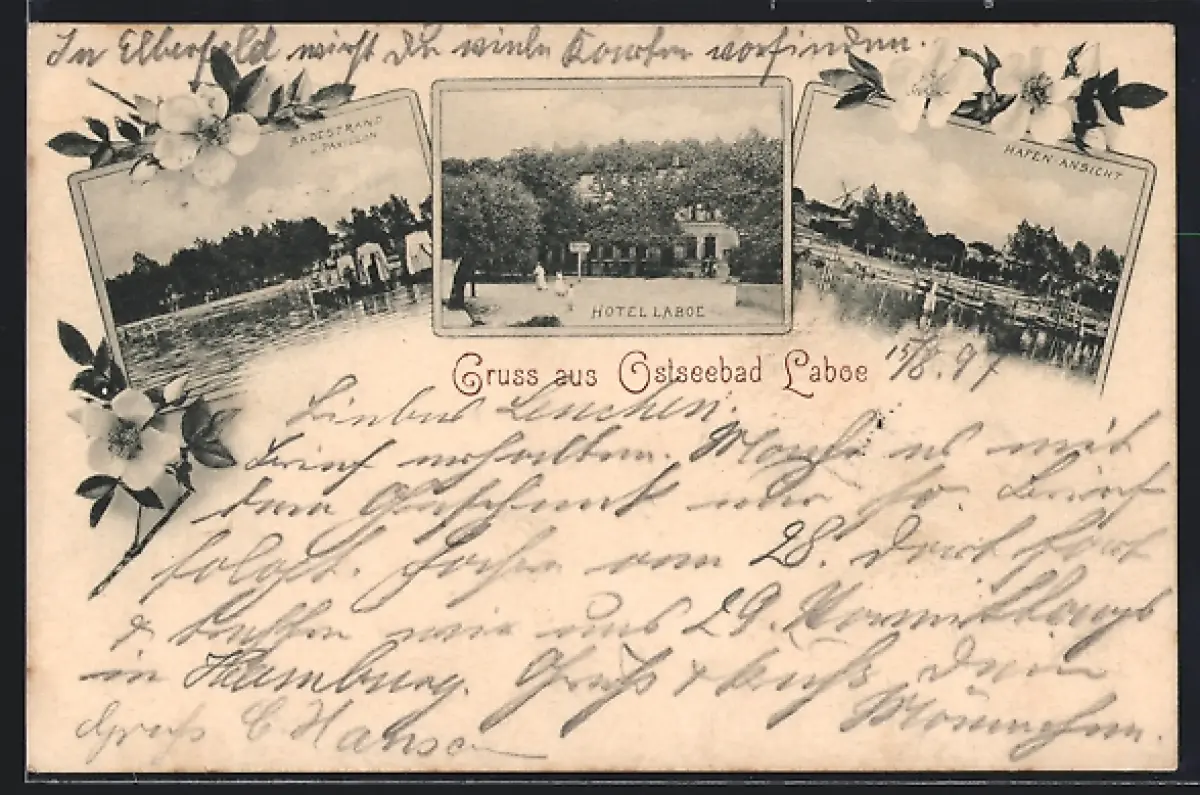 In Elberfeld wirst Du viele Karten vorfinden.
BADESTRAND
M. PAVILLON
HOTEL LABOE
HAFEN ANSICHT
Gruss aus Ostseebad Laboe
15/8.97
Liebes Lenchen.
Brief erhalten. Mache es mit
dem Geschenk nur so. Brief
folgt. vom 28. dort fort
& treffen wir uns 29. Vormittags
in Hamburg. Gruß & Kuß Dein
Männchen.
Gruß C. Hansen